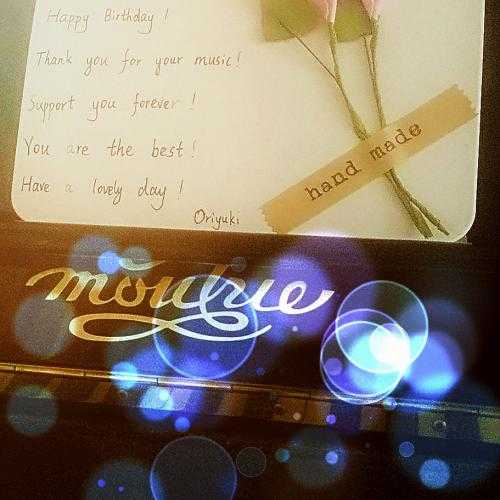 Happy Birthday!
Thank you for your music!
Support you forever!
You are the best!
Have a lovely day!
Oriyuki
hand made
moutrie